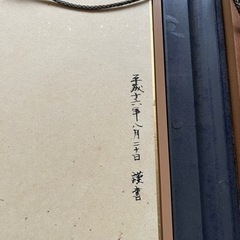 平成十六年八月二十日 謹書